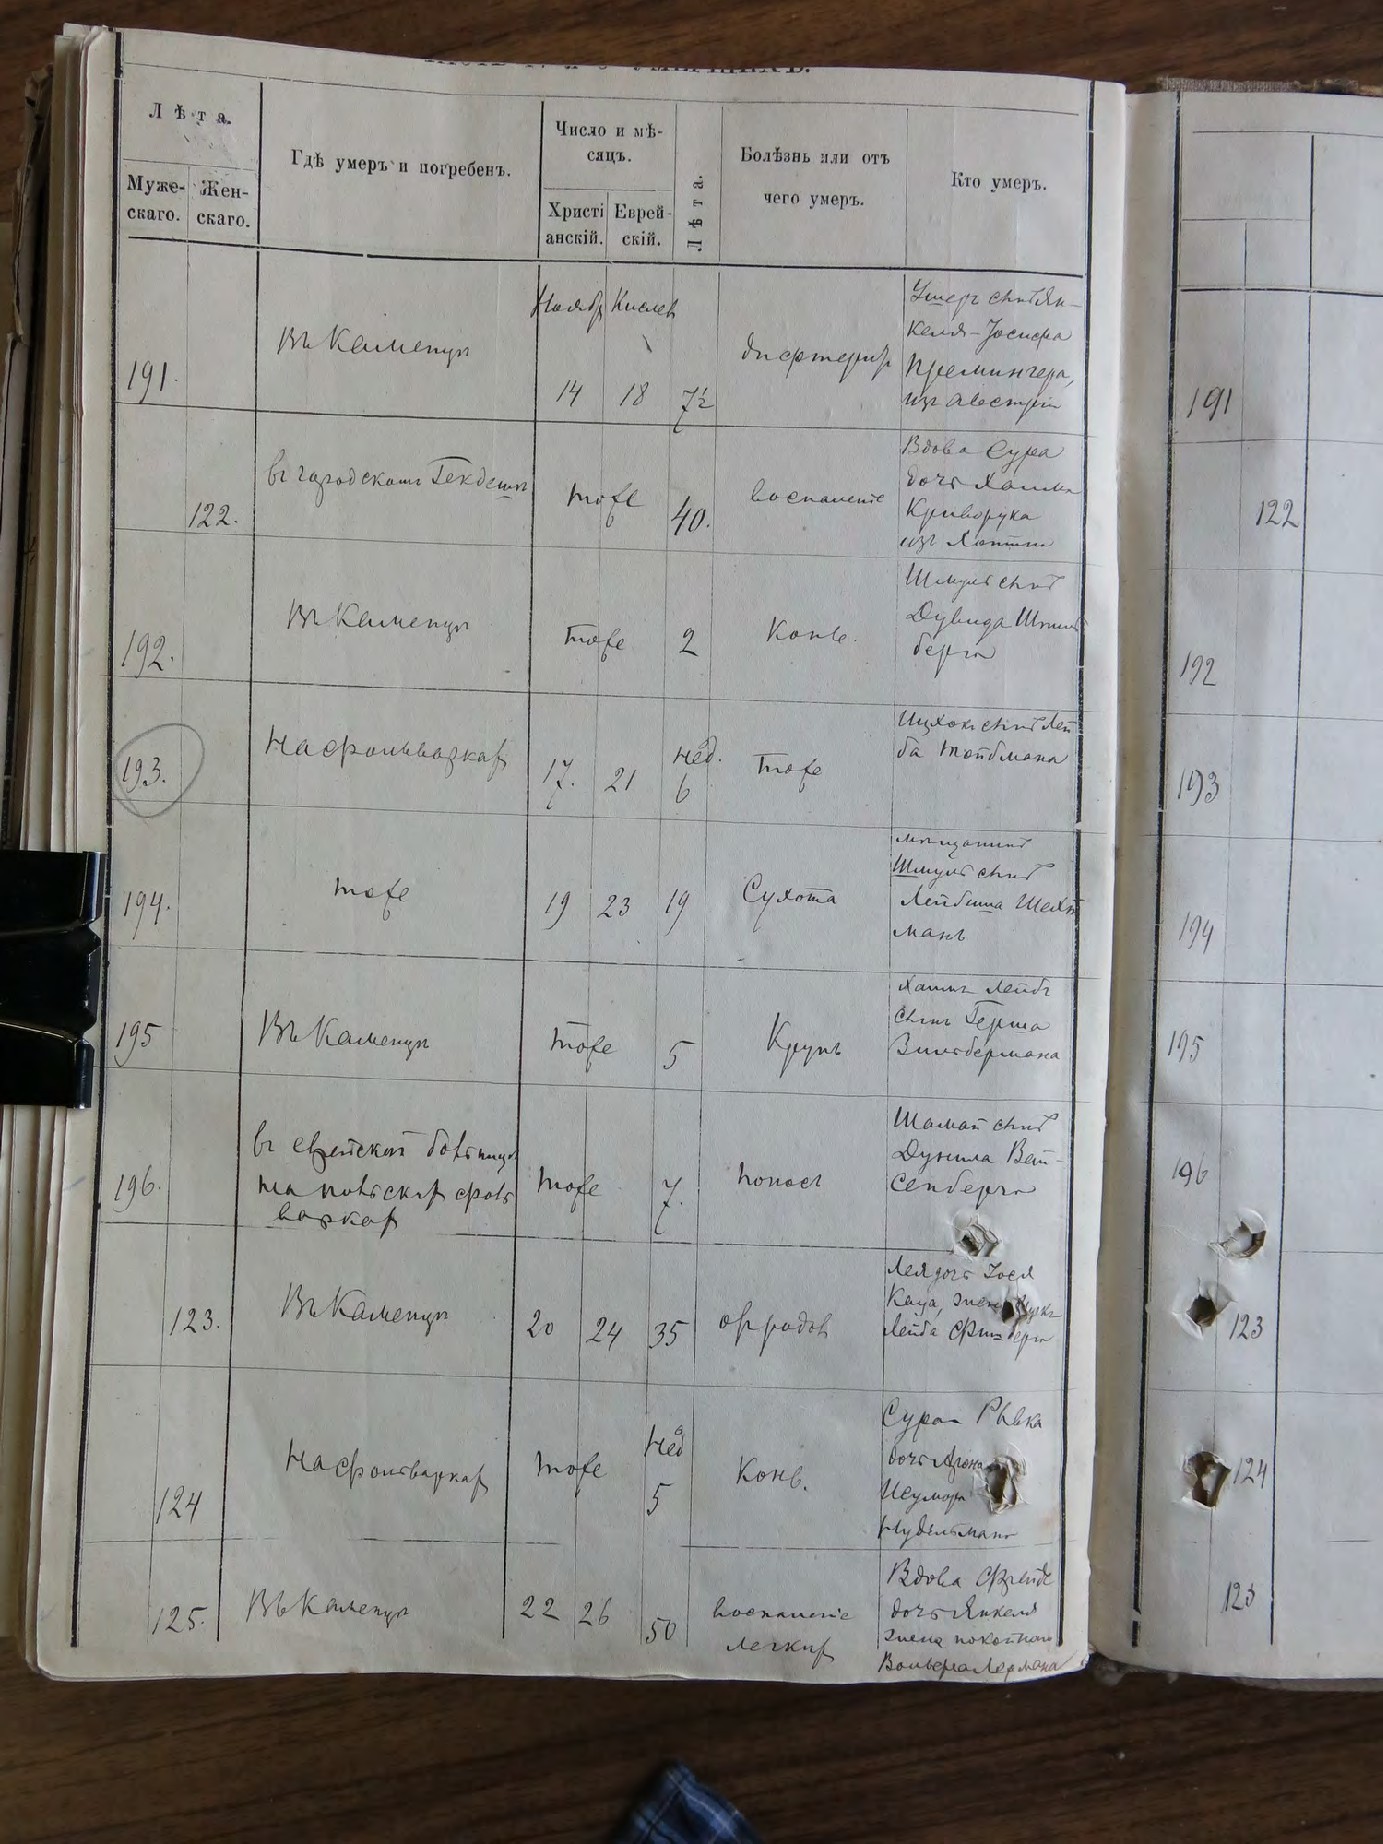 Лѣта.
Муже-
скаго.
Жен-
скаго.
Гдѣ умеръ и погребенъ.
Число и мѣ-
сяцъ.
Христі
анскій.
Еврей-
скій.
Лѣта.
Болѣзнь или отъ
чего умеръ.
Кто умеръ.
191.
Въ Каменцѣ
Ноябр Кислев
14 18 7½
дифтеритъ
Умеръ сынъ Ян-
келя-Іосифа
Премингера,
изъ Австріи
191
122.
въ городскомъ Гекдешѣ
тоже
40.
воспаленіе
Вдова Сура
дочь Хаима
Криворука
изъ
122
192.
Въ Каменцѣ
тоже
2
Конв.
Шмуль сынъ
Дувида
берга
192
193.
На фольваркахъ
17. 21
нед.
6
тоже
Ицхокъ сынъ Лей
ба Тойбмана
193
194.
тоже
19 23 19
Сухота
мѣщанинъ
Шмуль сынъ
Лейбиша Шехт
манъ
194
195
Въ Каменцѣ
тоже
5
Крупъ
Хаимъ Лейбъ
сынъ Герша
Зильбермана
195
196.
въ еврейской больницѣ
на польских фоль
варках
тоже
7.
поносъ
Шамай сынъ
Дунила Вай-
сенберга
196
123.
Въ Каменцѣ
20 24 35
от родов
Лея дочь Іося
Каца, жена
Лейба Финберга
123
124
На фольваркахъ
тоже
Нед
5
Конв.
Сура Ривка
дочь Арона
Нудельманъ
124
125.
Въ Каменцѣ
22 26 50
воспаленіе
легких
Вдова Фрейда
дочь Янкеля
жена покойнаго
Вольфа Лермана
123